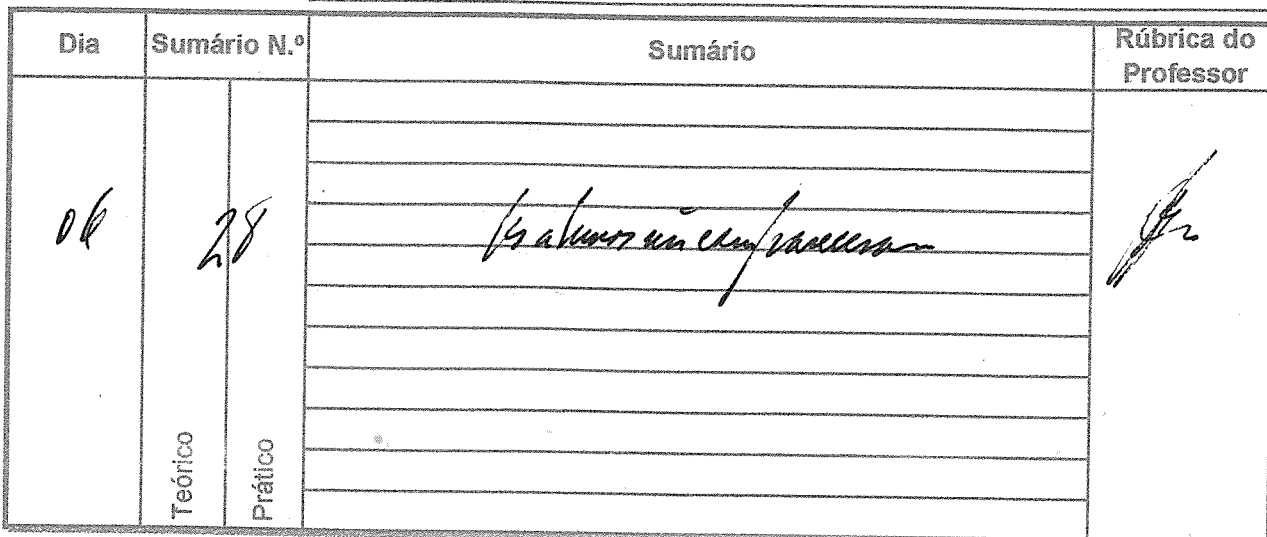 Dia Sumário N.º Sumário Rúbrica do
Professor
06 28 Os alunos ñ compareceram
Teórico
Prático